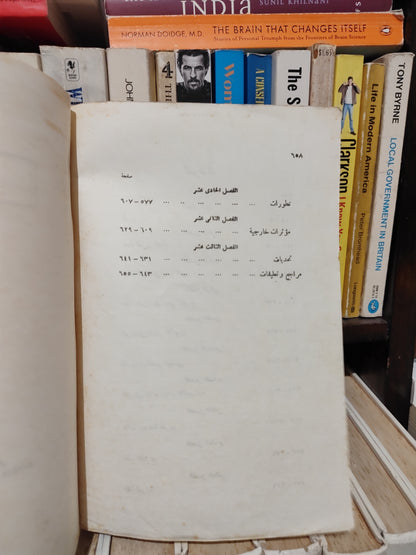 INDIA
SUNIL KHILNANI
NORMAN DOIDGE, M.D. THE BRAIN THAT CHANGES ITSELF
Stories of Personal Triumph from the Frontiers of Brain Science
JOHN
4
THE
The S
Clarkson
I Know You
Life in Modern America
Peter Bromhead
Longman
TONY BYRNE
LOCAL GOVERNMENT IN BRITAIN
٦٥٨
صفحة
الفصل الحادى عشر
تطورات .. ... ... ... ... ... .. .. ٥٧٧ - ٦٠٧
الفصل الثانى عشر
مؤثرات خارجية ... ... ... ... ... ... ٦٠٩ - ٦٢٩
الفصل الثالث عشر
تحديات ... ... ... ... ... ... ... ٦٣١ - ٦٤١
مراجع وتعليقات ... ... ... ... ... ٦٤٣ - ٦٥٥